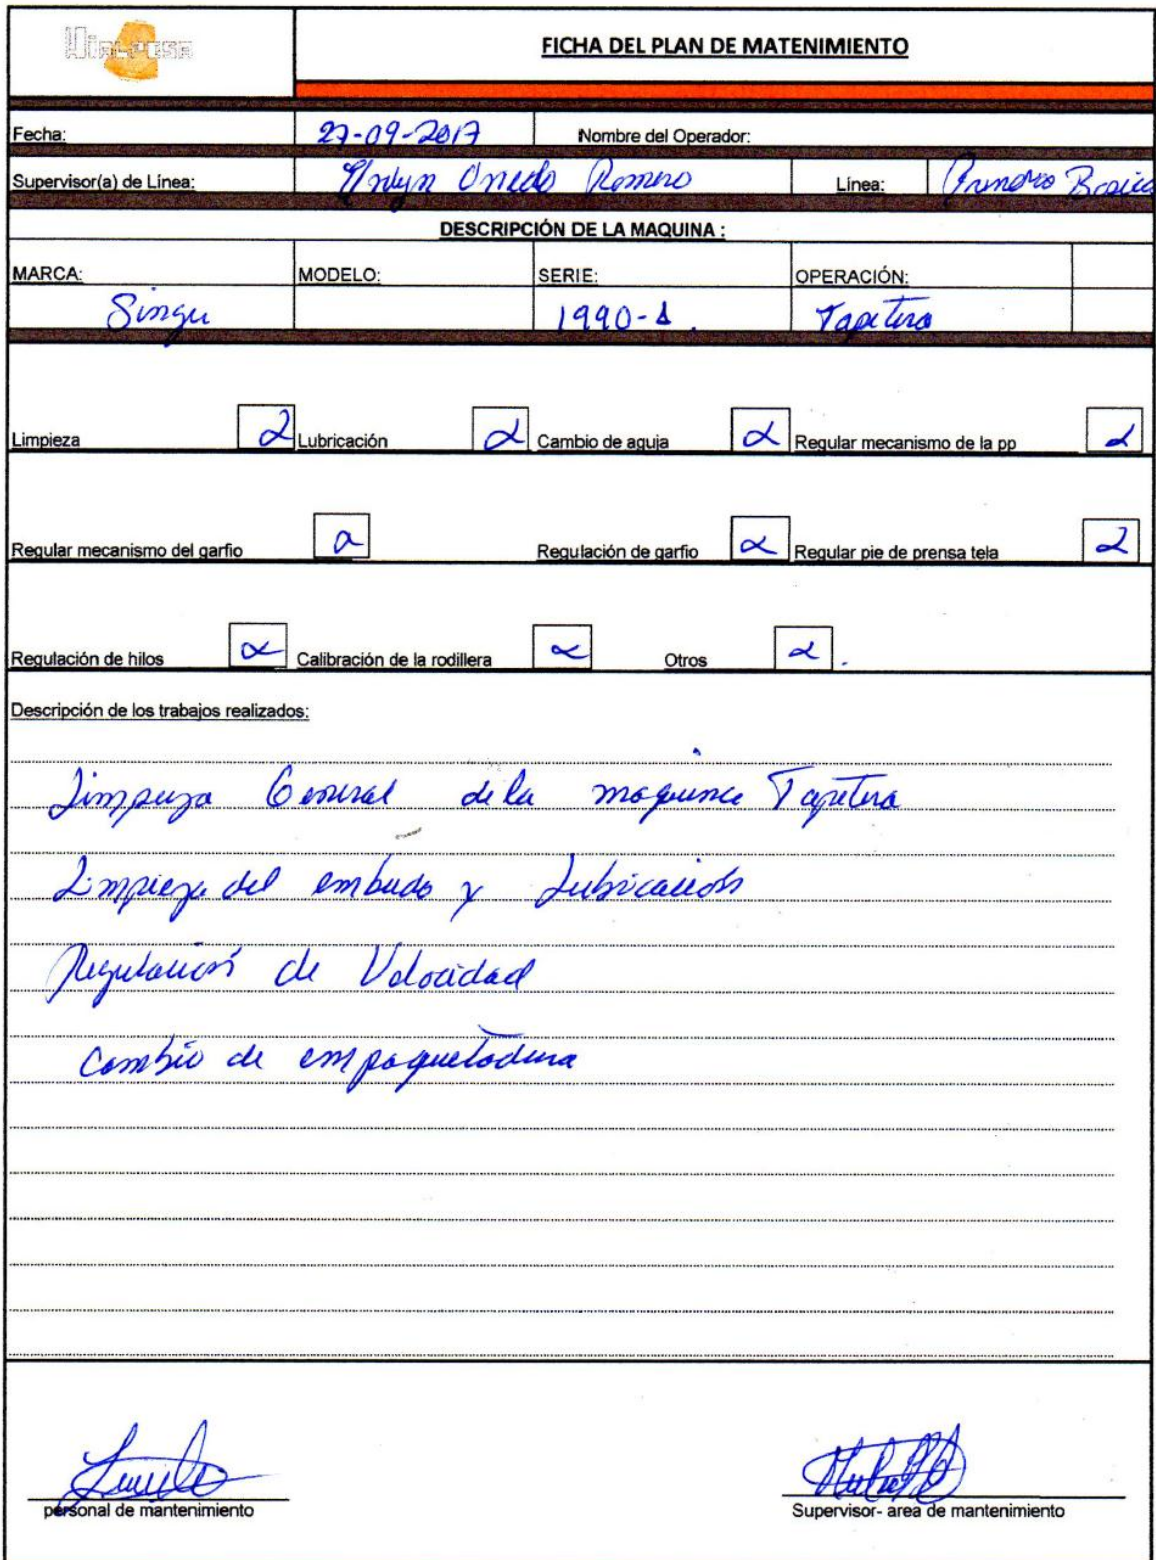 FICHA DEL PLAN DE MATENIMIENTO
Fecha: 27-09-2017 Nombre del Operador:
Supervisor(a) de Línea: Romero Línea:
DESCRIPCIÓN DE LA MAQUINA :
MARCA: MODELO: SERIE: OPERACIÓN:
Singer 1990-1. Tapetera
Limpieza Lubricación Cambio de aguja Regular mecanismo de la pp
Regular mecanismo del garfio Regulación de garfio Regular pie de prensa tela
Regulación de hilos Calibración de la rodillera Otros
Descripción de los trabajos realizados:
Limpieza General de la maquina Tapetera
Limpieza del embudo y Lubricación
Regulación de Velocidad
Cambio de empaquetadura
personal de mantenimiento Supervisor- area de mantenimiento